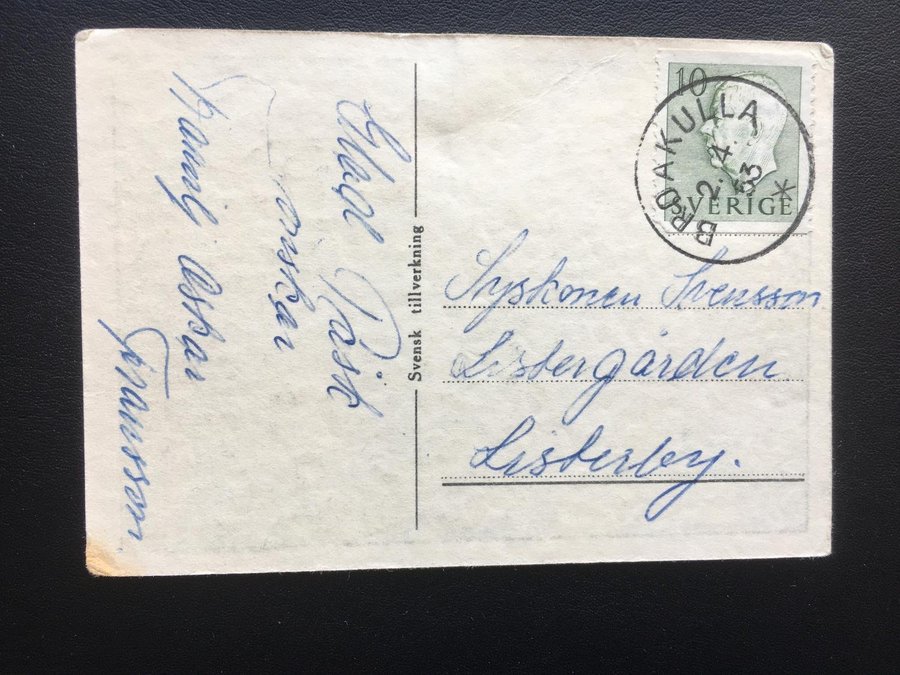 Glad Påsk
önskar
Familj Oskar
Fransson.
Svensk tillverkning
10
SVERIGE
BROAKULLA
2.4.53
Syskonen Svensson
Listergården
Listerby.